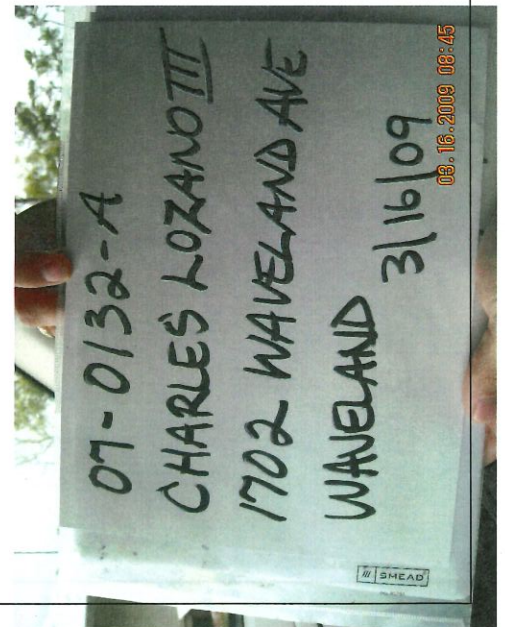 07-0132-A
CHARLES LOZANO III
1702 WAVELAND AVE
WAVELAND
3/16/09
03.16.2009 08:45
SMEAD